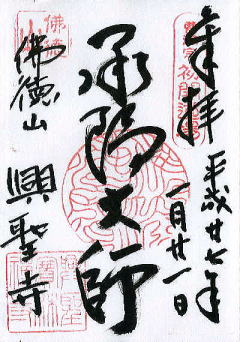 奉拝 平成廿七年
一月廿一日
承陽大師
佛徳山 興聖寺